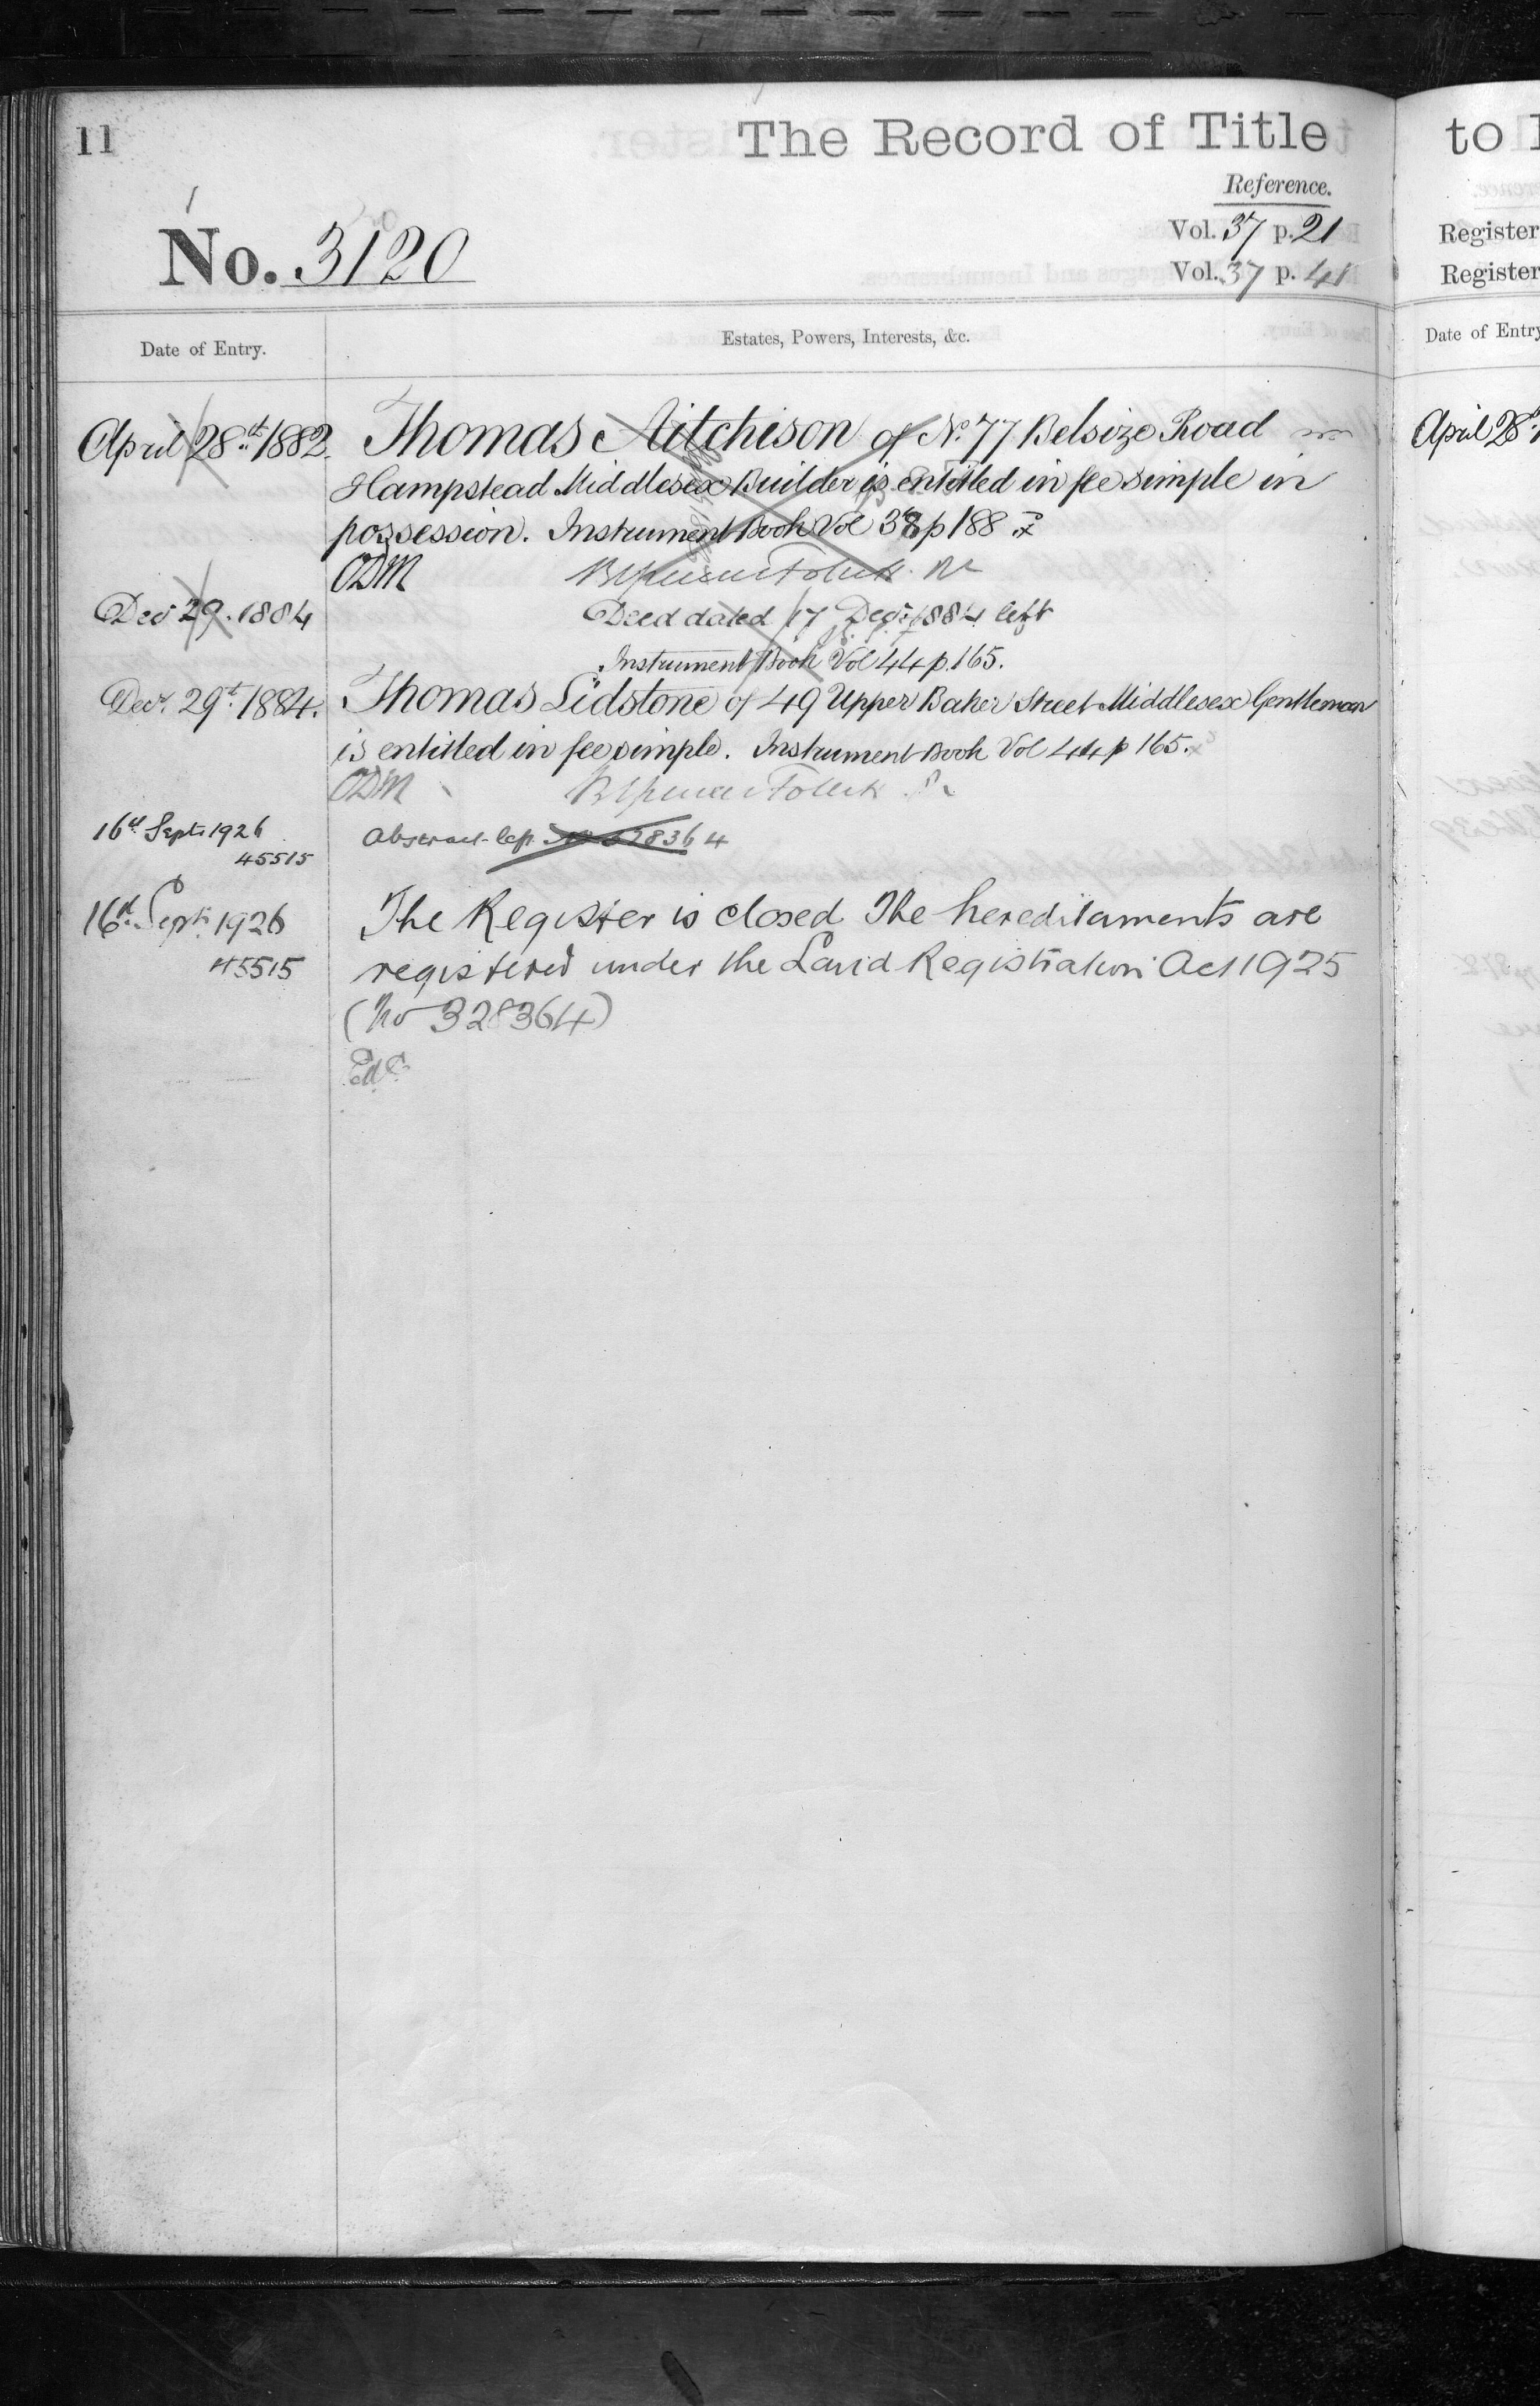 11
The Record of Title
to
Reference.
No. 3120
Vol. 37 p. 21
Vol. 37 p. 41
Register
Register
Date of Entry.
Estates, Powers, Interests, &c.
Date of Entry
April 28th 1882.
Thomas Aitchison of No. 77 Belsize Road
Hampstead Middlesex Builder is entitled in fee simple in
possession. Instrument Book Vol 38 p 188
ODM
April 28
Decr 29. 1884
Deed dated 17 Decr 1884 left
Instrument Book Vol 44 p. 165.
Decr. 29th 1884.
Thomas Lidstone of 49 Upper Baker Street Middlesex Gentleman
is entitled in fee simple. Instrument Book Vol 44 p 165.
ODM
16th Septr 1926
45515
Abstract
16th Septr 1926
45515
The Register is closed The hereditaments are
registered under the Land Registration Act 1925
(No 328364)